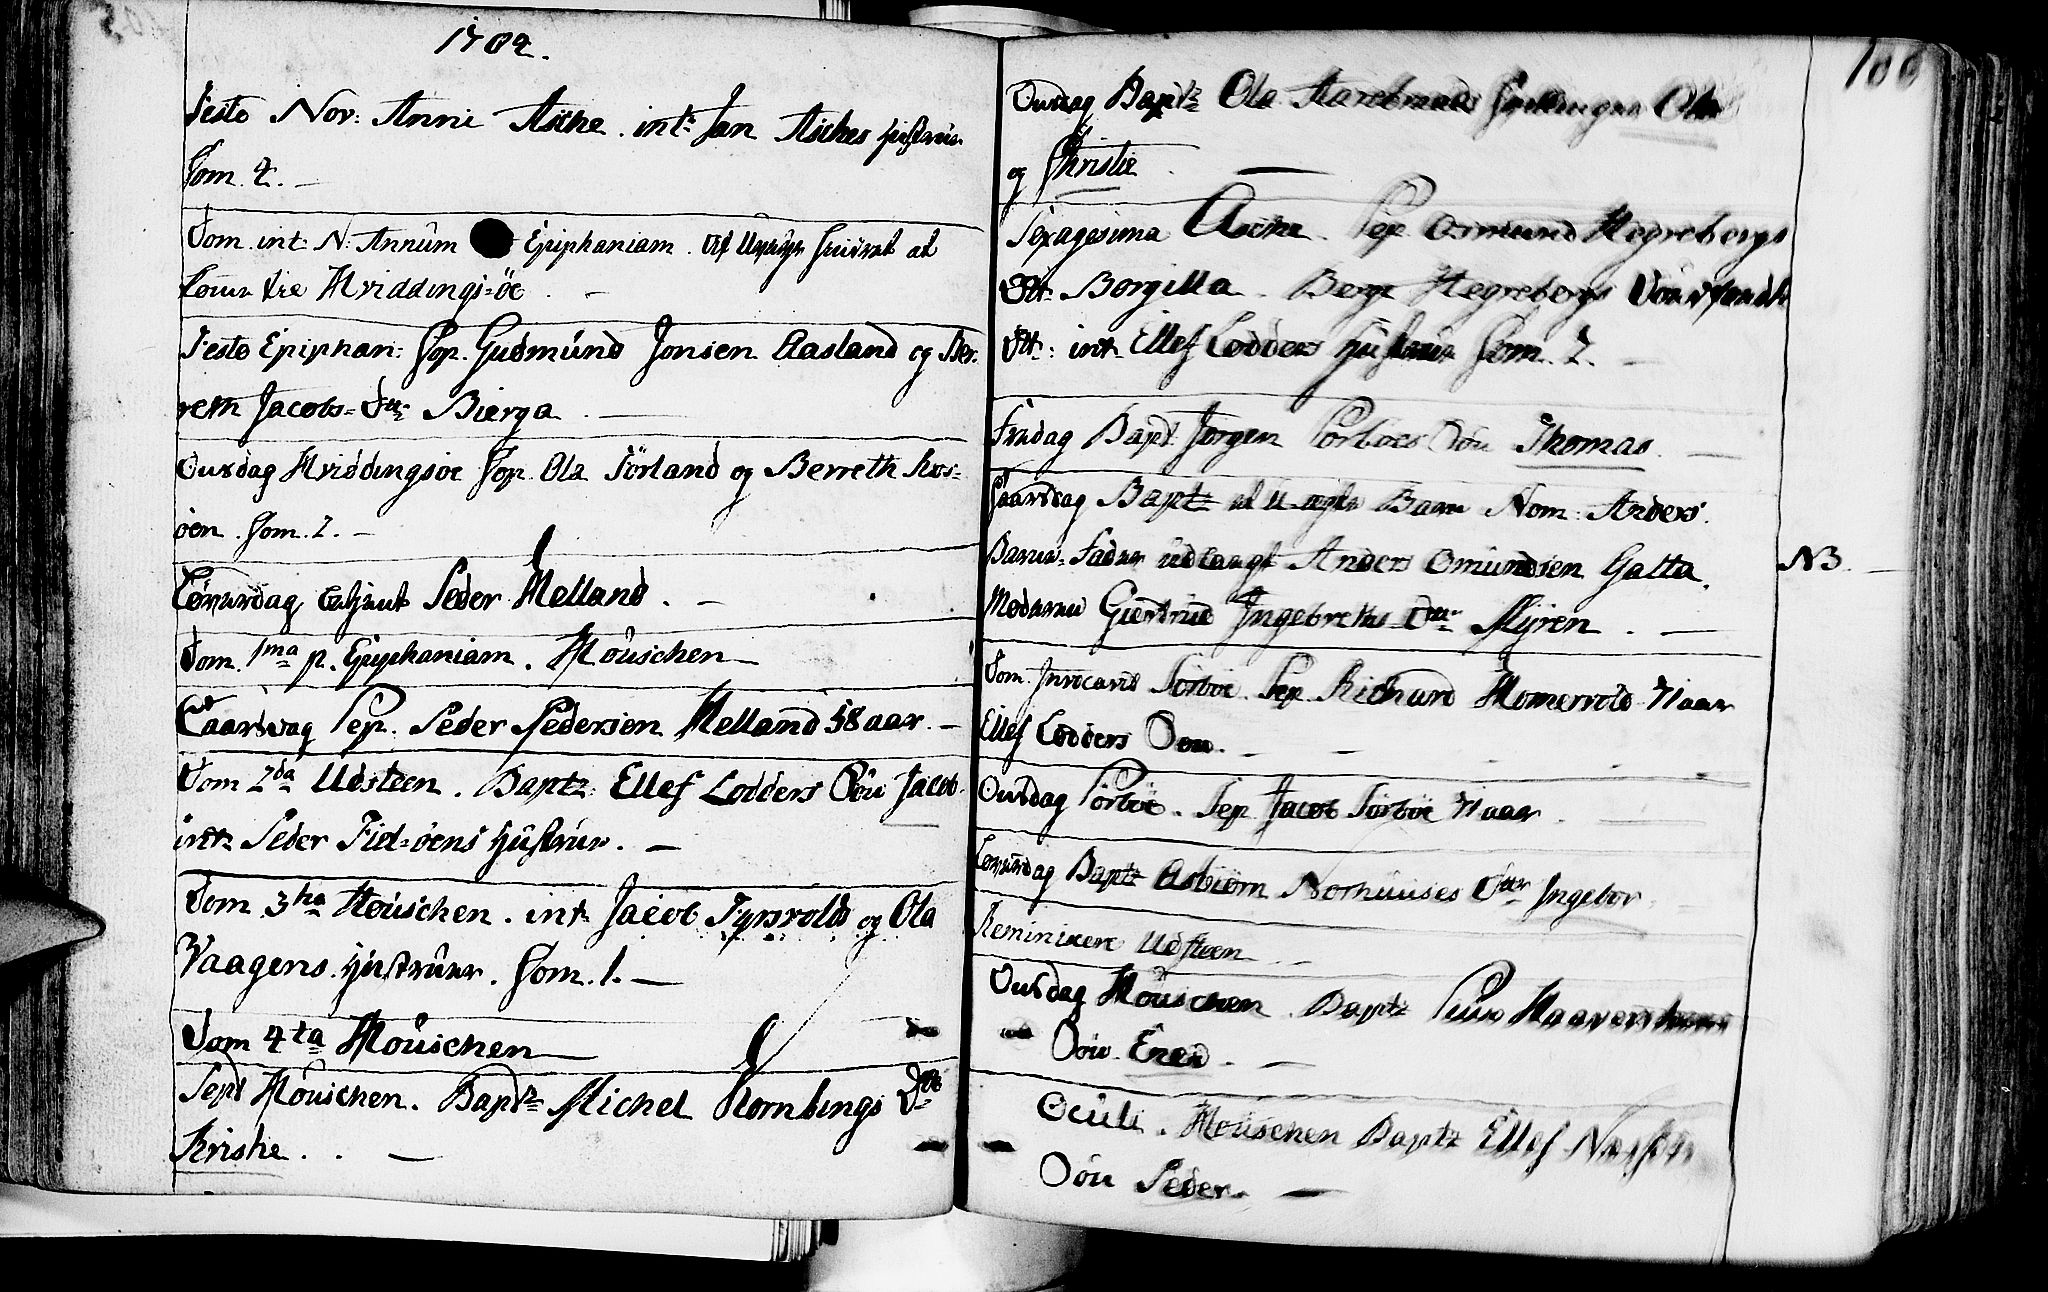 1702.
Festo Nov: Anni Aske. intr: Jan Askes Hustrue
Com. 2. —
Dom. int. N: Annum Epiphaniam. af hindret at
komme til Hviddings-öe. —
Festo Epiphan: Cop. Gudmund Jonsen Aasland og Ber-
reth Jacobs-Dtr Bierga. —
Onsdag Hviddingsöe Cop. Ola Sörland og Berreth Ros-
öen. Com. 2. —
Löverdag Peder Helland. —
Dom. 1ma p. Epiphaniam. Höuschen —
Sep. Peder Pedersen Helland 58 aar. —
Dom 2da Udsteen. Baptz: Ellef Lodders Sön Jacob.
intr Peder Fiel-öens Hustrue. —
Dom. 3tia Höuschen. intr Jacob og Ola
Vaagens Hustruer. Com. 1. —
Dom 4ta Höuschen —
Sept Höuschen. Baptz Michel Hornbings Dtr
Kristie. . —
100
Onsdag Baptz Ola Tvillinger Ola
og Christie. —
Sexagesima Aske. Sep. Osmund Hegrebergs
Dtr. Borgilla. Berge Hegrebergs
Dtr: intr Ellef Lodders Hustrue Com. 2. —
Fredag Bapt. Jörgen Sörböes Sön Thomas. —
Baptz et u-ægte Barn Nom: Anders.
Barne-Fader udlagt Anders Omundsen Galta. NB. —
Moderen Giertrud Ingebreths Dtr Myren. —
Dom. Invocavit Sörböe. Sep. Richard 71 aar
Ellef Lodders Sön. —
Onsdag Sörböe. Sep Jacob Sörböe 71 aar.
Löverdag Baptz Asbiörn Norhuuses Dtr Ingebor.
Reminiscere Udsteen
Onsdag Höuschen. Baptz
Sön. —
Oculi. Höuschen Baptz Ellef
Sön Peder. —